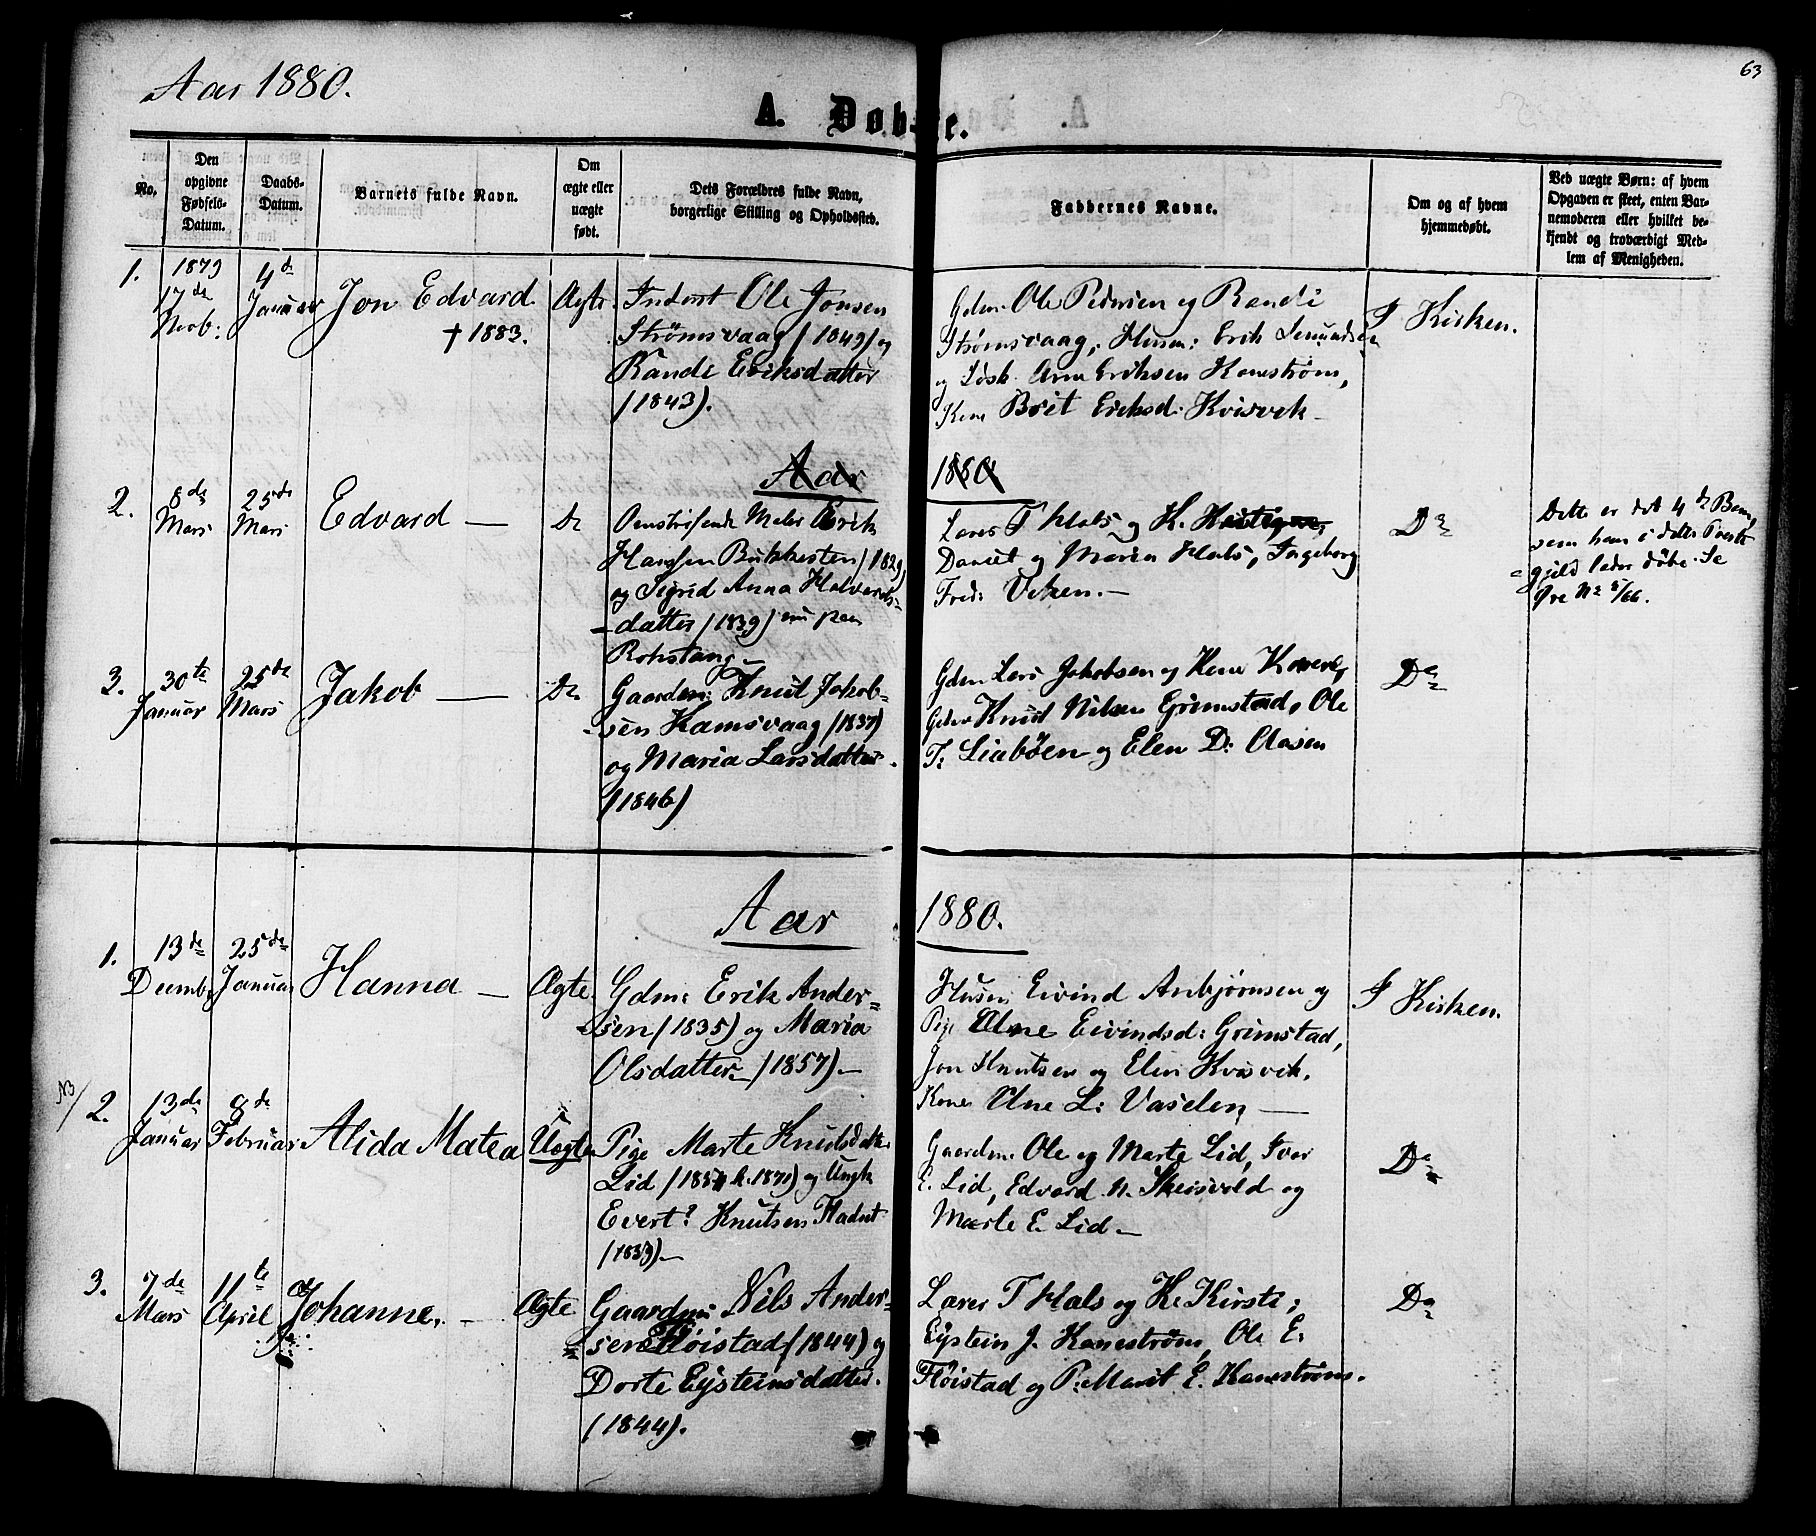 63
Aar 1880.
A. Døbte.
No.
Den opgivne Fødsels-Datum.
Daabs-Datum.
Barnets fulde Navn.
Om ægte eller uægte født.
Dets Forældres fulde Navn, borgerlige Stilling og Opholdssted.
Faddernes Navne.
Om og af hvem hjemmedøbt.
Ved uægte Børn: af hvem Opgaven er skeet, enten Barnemoderen eller hvilket bekjendt og troværdigt Medlem af Menigheden.
1.
1879
17de
Novb:
4de
Januar
Jon Edvard
† 1883.
Ægte
Inderst Ole Jonsen
Strømsvaag (1849) og
Randi Eriksdatter
(1843).
Gdm. Ole Pedersen og Randi
Strømsvaag, Husm: Erik Semundsen
og Løsk. Arne Eriksen Kanestrøm,
Kone Brit Eriksd: Kvisvik
I Kirken.
Aar 1880
2.
8de
Mars
25de
Mars
Edvard —
Do
Omstreifende Maler Erik
Hanssen Bukkesten (1829)
og Sigrid Anna Halvords-
datter (1839) nu paa
Rokstang
Lærer T Hals og K.
Daniet og Maria Hals, Ingeborg
Fred: Viken. —
Do
Dette er det 4de Barn,
som han i dette Præste-
gjeld lader døbe. Se
Øre No 5/66.
3.
30te
Januar
25de
Mars
Jakob —
Do
Gaardm: Knut Jakob-
sen Hamsvaag (1837)
og Maria Larsdatter.
(1846)
Gdm Lars Jakobsen og Kone
Gdm Knut Nilsen Grimstad, Ole
T. Liabøen og Elen D: Aasen
Do
Aar 1880.
1.
13de
Decemb.
25de
Januar
Hanna —
Ægte
Gdm: Erik Ander-
sen (1835) og Maria
Olsdatter (1857) —
Husm Eivind Anbjørnsen og
Pige Ane Eivindsd: Grimstad,
Jon Knutsen og Elen Kvisvik.
Kone Ane L: Vaselen —
I Kirken.
NB/
2.
13de
Januar
8de
Februar
Alida Matea
Uægte
Pige Marte Knutsdatter
Lid (1854 k. 1871) og Ungk
Evert? Knutsen Fladset
(1853) —
Gaardm. Ole og Marte Lid, Iver
E. Lid, Edvard N. Skeisvold og
Marte E. Lid —
Do
3.
7de
Mars
11te
April
Johanne. —
Ægte
Gaardm: Nils Ander-
sen Fløistad (1844) og
Dorte Eysteinsdatter.
(1844).
Lærer T Hals og K. Kirsti;
Eystein J. Kanestrøm, Ole E.
Fløistad og P: Marit E. Kanestrøm.
Do